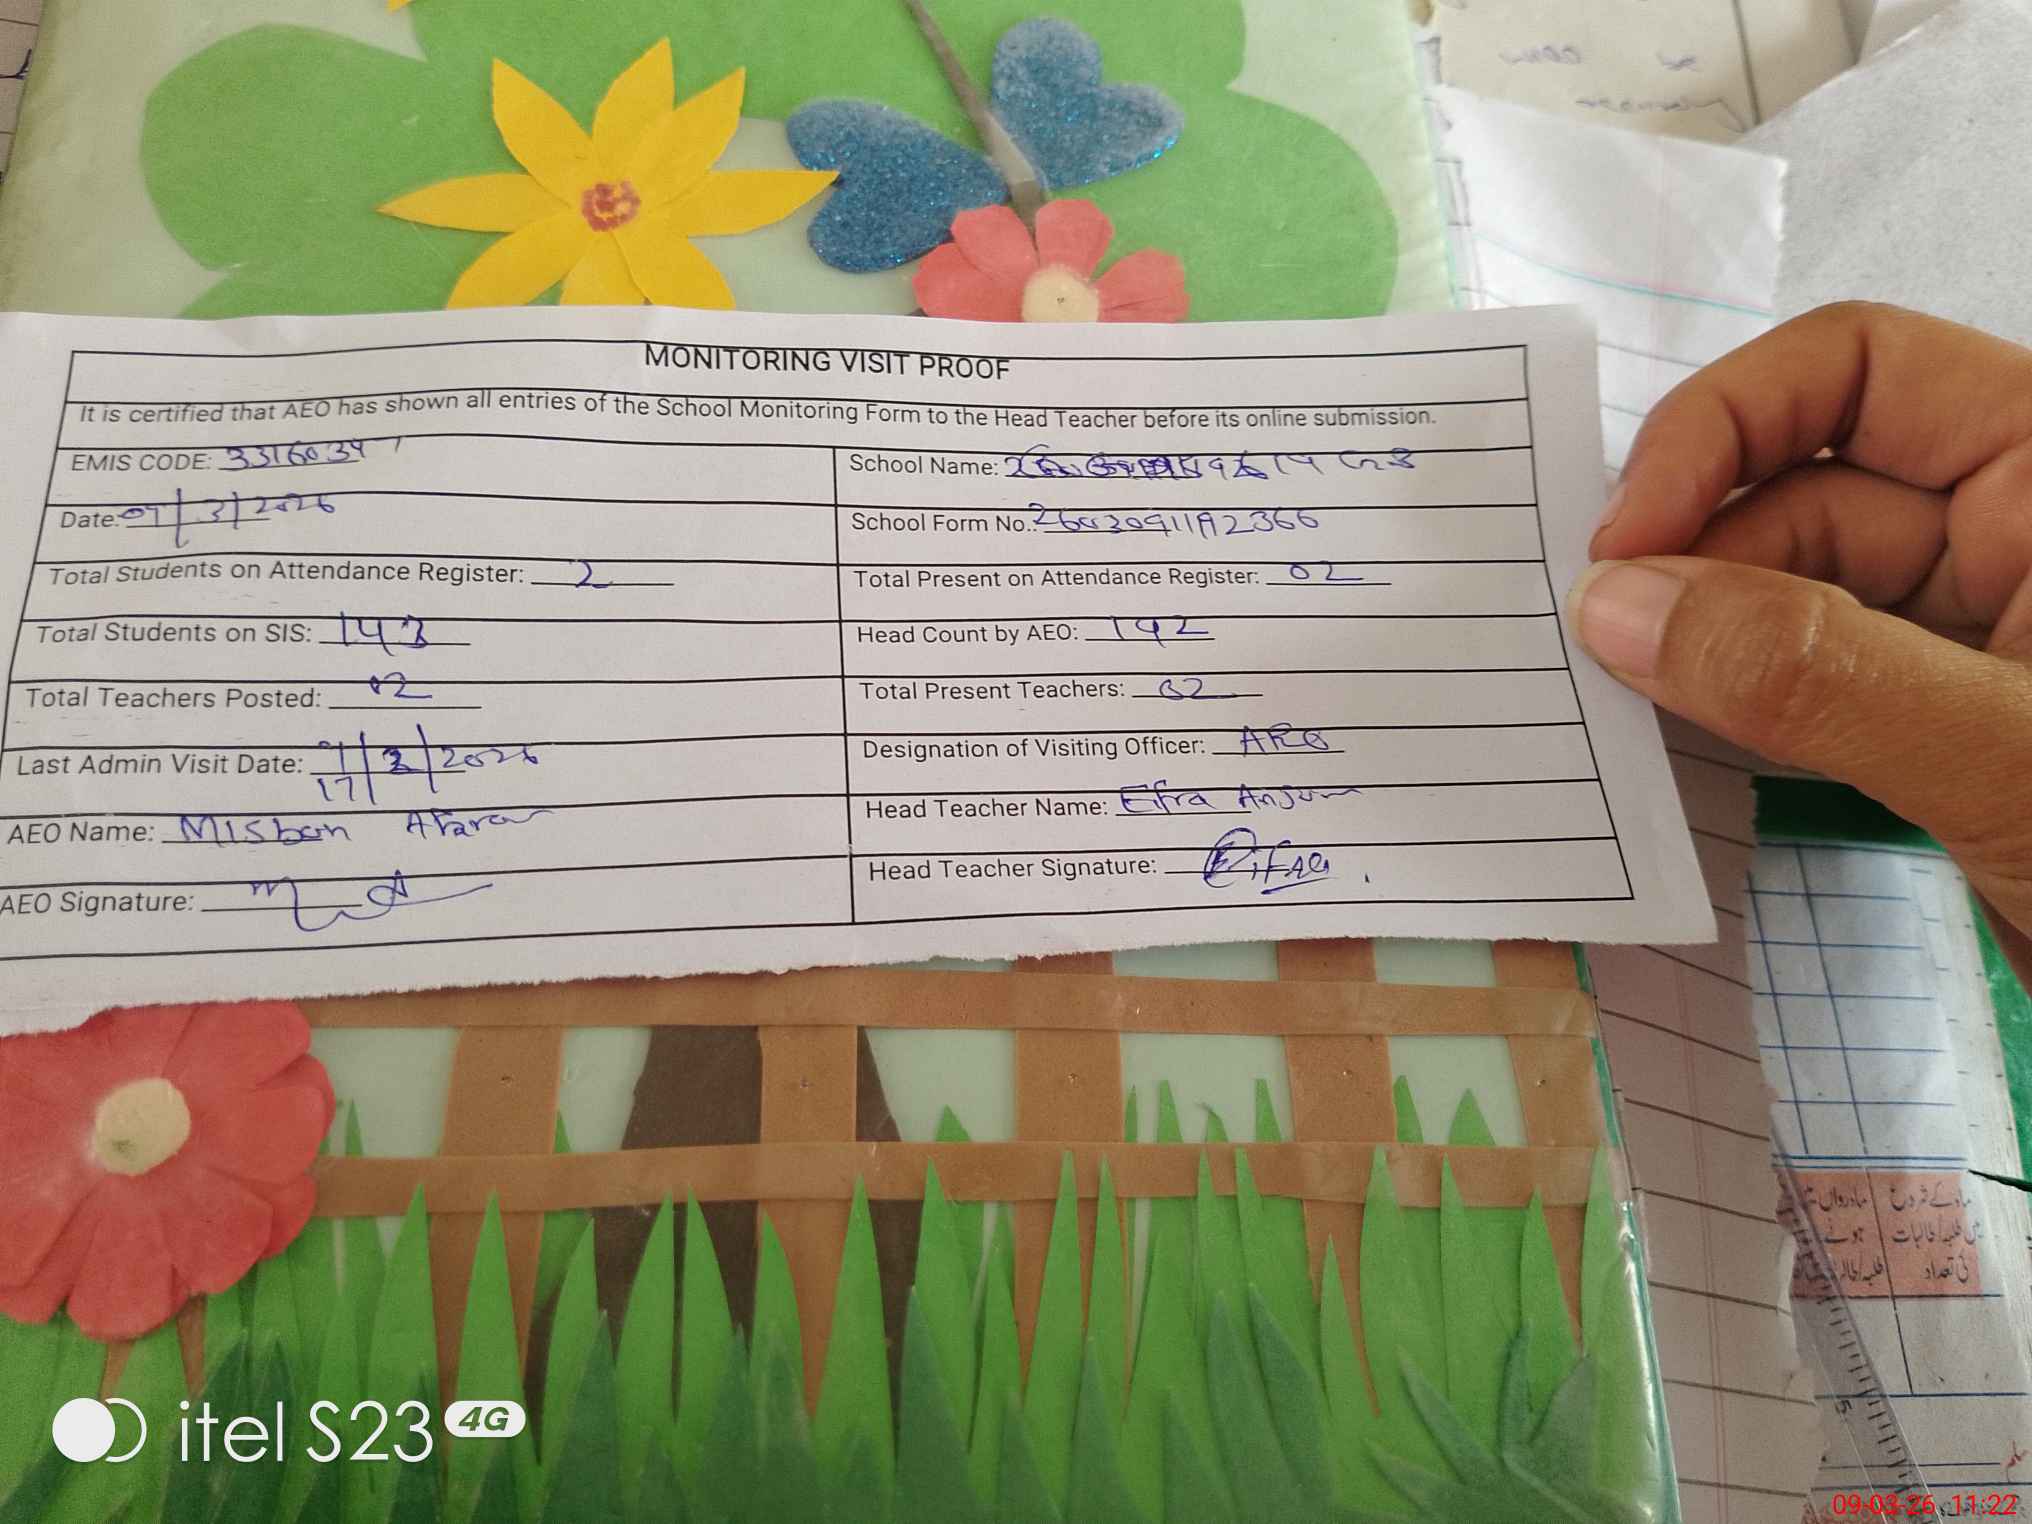 MONITORING VISIT PROOF
It is certified that AEO has shown all entries of the School Monitoring Form to the Head Teacher before its online submission.
EMIS CODE: 3316034
School Name: GB
Date: 09/3/2026
School Form No.: 26030911A2366
Total Students on Attendance Register: 2
Total Present on Attendance Register: 02
Total Students on SIS: 143
Head Count by AEO: 142
Total Teachers Posted: 02
Total Present Teachers: 02
Last Admin Visit Date: 2026
17
Designation of Visiting Officer: AEO
AEO Name: Misbah
Head Teacher Name: Eifra Anjum
AEO Signature:
Head Teacher Signature: Eifra
ماہ کے شروع
میں طلبہ/طالبات
کی تعداد
itel S23 4G
09-03-26 11:22